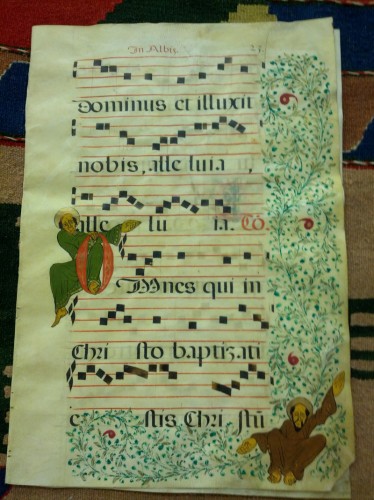 In Albis.
Dominus et illuxit
nobis, alle luia,
alle lu ia. Cō
OMnes qui in
Chri sto baptizati
estis Chri stū